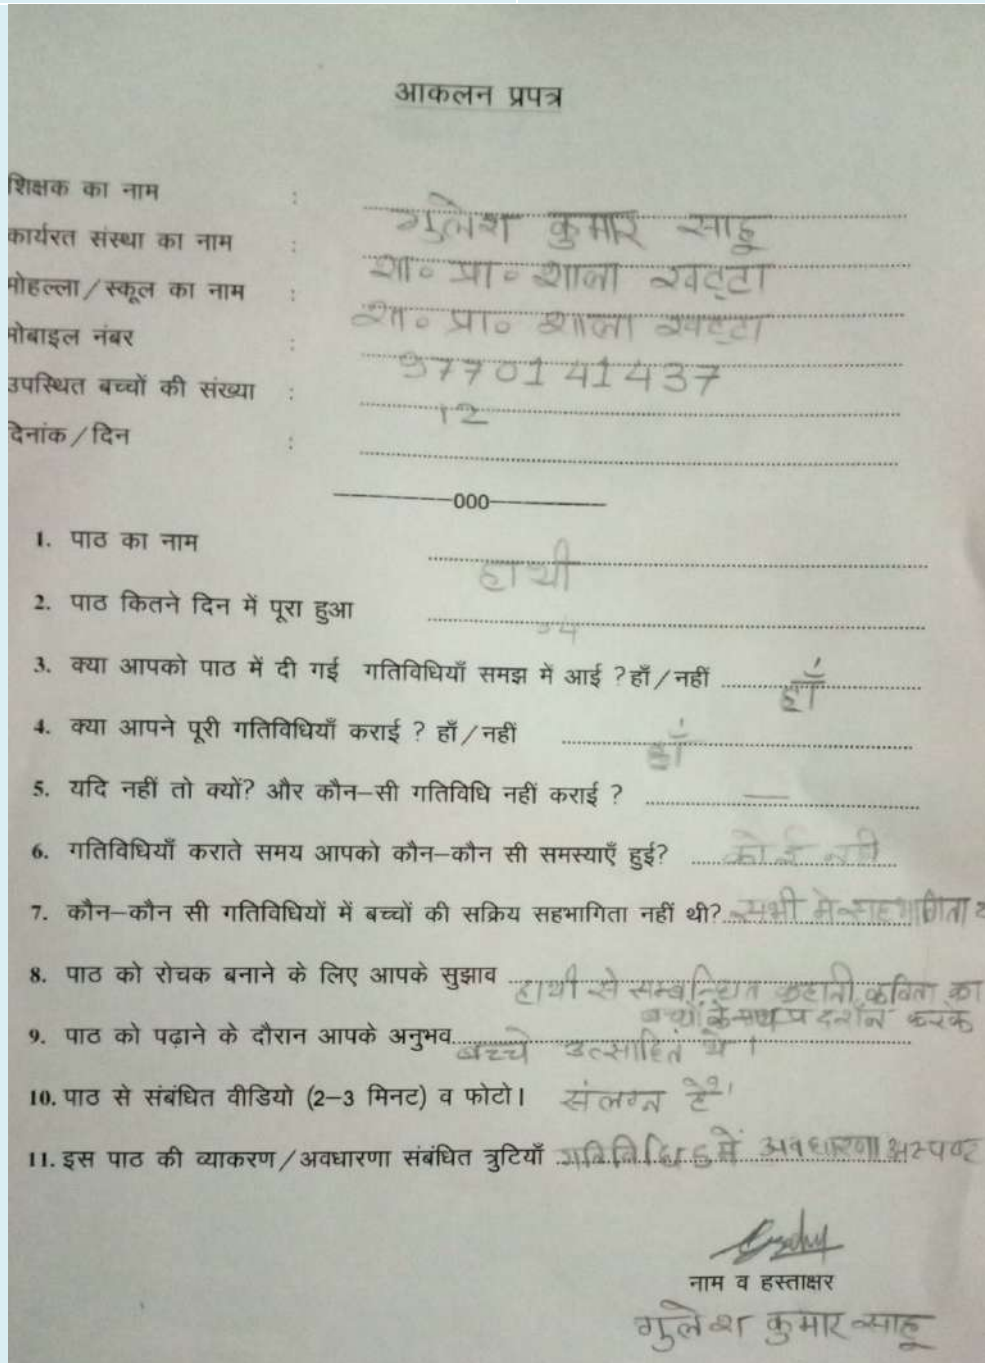 आकलन प्रपत्र
शिक्षक का नाम : गुलेश कुमार साहू
कार्यरत संस्था का नाम : शा० प्रा० शाला खट्टा
मोहल्ला/स्कूल का नाम : शा० प्रा० शाला खट्टा
मोबाइल नंबर : 9770141437
उपस्थित बच्चों की संख्या : 12
दिनांक/दिन :
000
1. पाठ का नाम हाथी
2. पाठ कितने दिन में पूरा हुआ
3. क्या आपको पाठ में दी गई गतिविधियाँ समझ में आई ? हाँ/नहीं हाँ
4. क्या आपने पूरी गतिविधियाँ कराई ? हाँ/नहीं हाँ
5. यदि नहीं तो क्यों? और कौन–सी गतिविधि नहीं कराई ? —
6. गतिविधियाँ कराते समय आपको कौन–कौन सी समस्याएँ हुई? कोई नहीं
7. कौन–कौन सी गतिविधियों में बच्चों की सक्रिय सहभागिता नहीं थी? सभी मे सहभागिता
8. पाठ को रोचक बनाने के लिए आपके सुझाव हाथी से सम्बन्धित कहानी, कविता का
बच्चों के मध्य प्रदर्शन करके
9. पाठ को पढ़ाने के दौरान आपके अनुभव बच्चे उत्साहित थे ।
10. पाठ से संबंधित वीडियो (2–3 मिनट) व फोटो। संलग्न है।
11. इस पाठ की व्याकरण/अवधारणा संबंधित त्रुटियाँ गतिविधि 5 में अवधारणा अस्पष्ट
नाम व हस्ताक्षर
गुलेश कुमार साहू